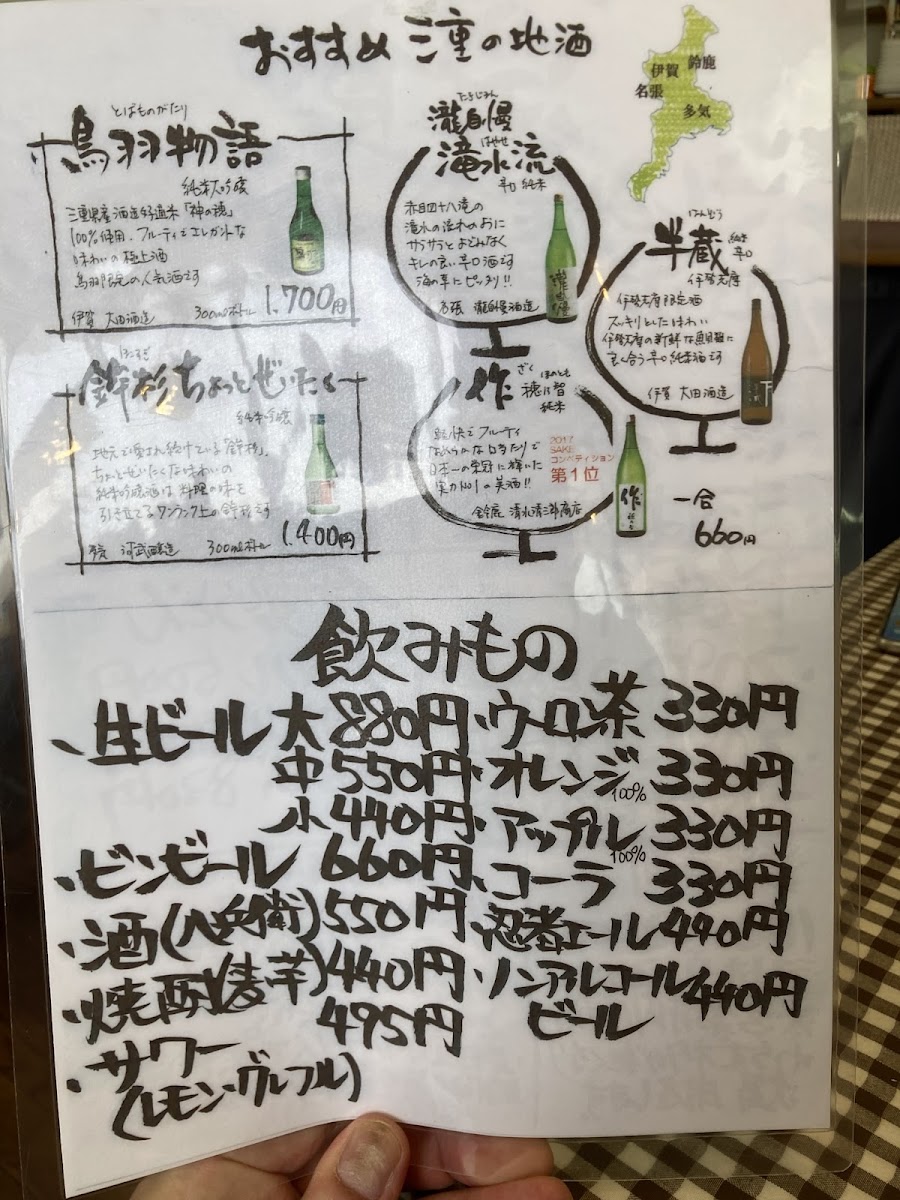 おすすめ 三重の地酒
伊賀 鈴鹿
名張
多気
とばものがたり
鳥羽物語
純米大吟醸
三重県産酒造好適米「神の穂」
100%使用。フルーティでエレガントな
味わいの極上酒
鳥羽限定の人気酒です
伊賀 大田酒造 300mlボトル 1,700円
たきじまん
瀧自慢
はやせ
滝水流
辛口 純米
赤目四十八滝の
滝水の流れのように
サラサラとよどみなく
キレの良い辛口酒です
海の幸にピッタリ!!
名張 瀧自慢酒造
はんぞう
半蔵
純米
辛口
伊勢志摩
伊勢志摩限定酒
スッキリとした味わい
伊勢志摩の新鮮な魚介類に
良く合う辛口純米酒です
伊賀 大田酒造
ほこすぎ
鉾杉 ちょっとぜいたく
純米吟醸
地元で愛され続けている「鉾杉」
ちょっとぜいたくな味わいの
純米吟醸酒は料理の味を
引き立てるワンランク上の鉾杉です
多気 河武醸造 300mlボトル 1,400円
ざく
作
ほのとも
穂乃智
純米
軽快でフルーティ
なめらかな口当たりで
日本一の栄冠に輝いた
実力No1の美酒!!
2017
SAKE
コンペティション
第1位
鈴鹿 清水清三郎商店
一合
660円
飲みもの
・生ビール 大 880円
中 550円
小 440円
・ビンビール 660円
・酒(八兵衛) 550円
・焼酎(麦芋) 440円
・サワー 495円
(レモン・グレフル)
・ウーロン茶 330円
・オレンジ 100% 330円
・アップル 100% 330円
・コーラ 330円
・忍者エール 490円
・ノンアルコール 440円
ビール